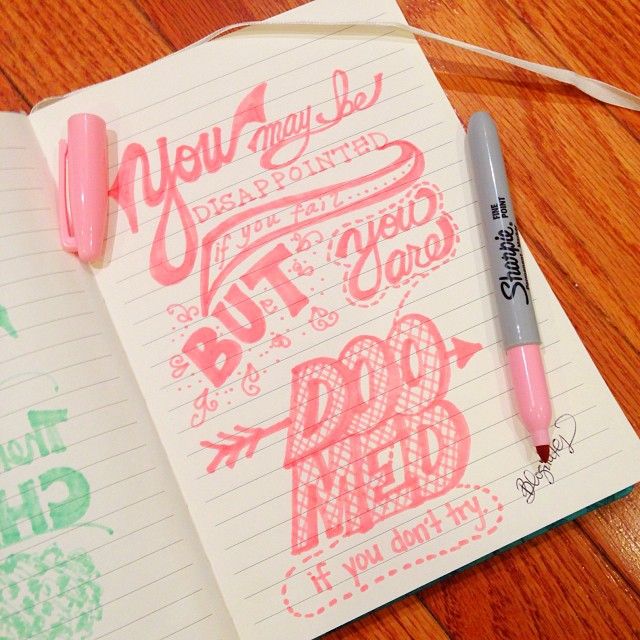 You may be
DISAPPOINTED
if you fail.......
BUT you
are
DOO
MED
if you don't try.
Sharpie.
FINE POINT
CH